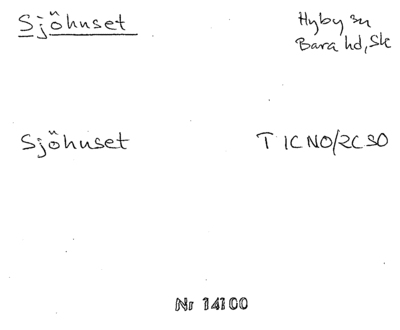 Sjöhuset
Hyby sn
Bara hd, Sk
Sjöhuset
T 1C NO/2C SO
Nr 14100